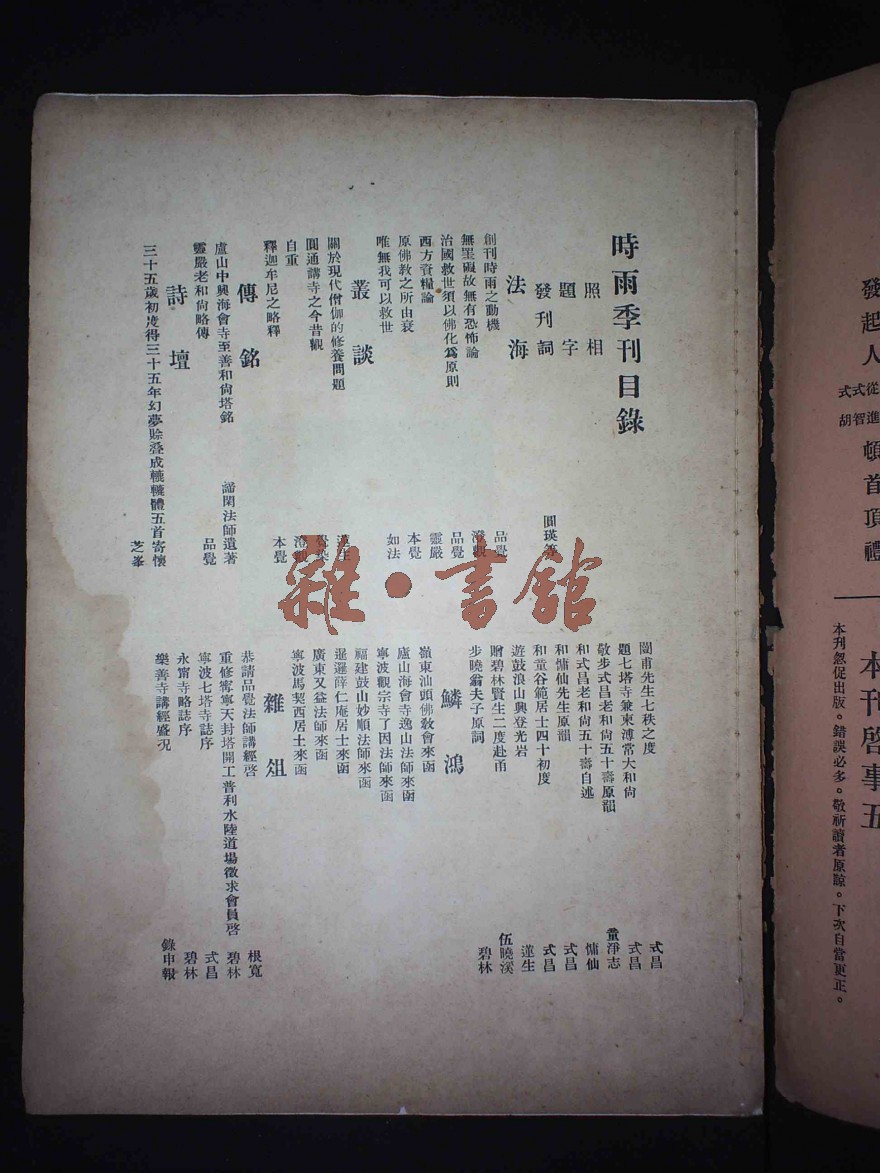 時雨季刊目錄
照相
題字
發刊詞
圓瑛等
法海
創刊時雨之動機
品覺
無罣礙故無有恐怖論
治國救世須以佛化爲原則
品覺
西方資糧論
靈嚴
原佛敎之所由衰
本覺
唯無我可以救世
如法
叢談
關於現代僧伽的修養問題
圓通講寺之今昔觀
自重
釋迦牟尼之略釋
本覺
傳銘
盧山中興海會寺至善和尙塔銘
諦閑法師遺著
靈嚴老和尙略傳
品覺
詩壇
三十五歲初度得三十五年幻夢賒叠成轆轤體五首寄懷
芝峯
闇甫先生七秩之度
式昌
題七塔寺兼柬溥常大和尙
式昌
敬步式昌老和尙五十壽原韻
童淨志
和式昌老和尙五十壽自述
慵仙
和慵仙先生原韻
式昌
和童谷範居士四十初度
式昌
遊鼓浪山興登光岩
蓮生
贈碧林賢生二度赴甬
伍曉溪
步曉翁夫子原詞
碧林
鱗鴻
嶺東汕頭佛敎會來函
盧山海會寺逸山法師來函
寧波觀宗寺了因法師來函
福建鼓山妙順法師來函
暹邏薛仁庵居士來函
廣東又益法師來函
寧波馬契西居士來函
雜俎
恭請品覺法師講經啓
根寬
重修寗寧天封塔開工普利水陸道場徵求會員啓
碧林
寧波七塔寺誌序
式昌
永甯寺略誌序
碧林
樂善寺講經盛况
錄申報
雜·書館
發起人
式式從
胡智進
頓首頂禮
本刊啓事五
本刊忽促出版。錯誤必多。敬祈讀者原諒。下次自當更正。